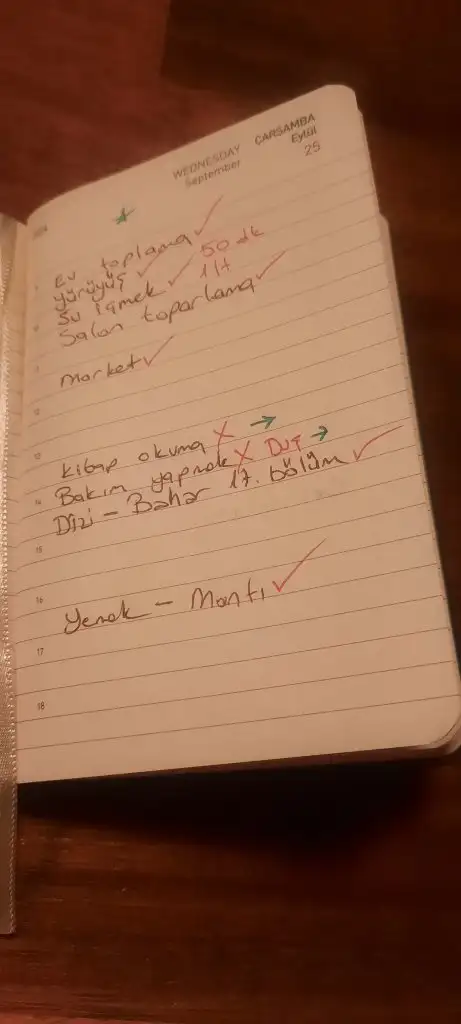 WEDNESDAY ÇARŞAMBA
September Eylül
25
Ev toplama ✓
yürüyüş ✓ 50 dk
Su içmek ✓ 1 lt
Salon toparlama ✓
Market ✓
12
13 kitap okuma X →
14 Bakım yapmak X Duş →
Dizi - Bahar 17. bölüm ✓
15
16
Yemek - Mantı ✓
17
18